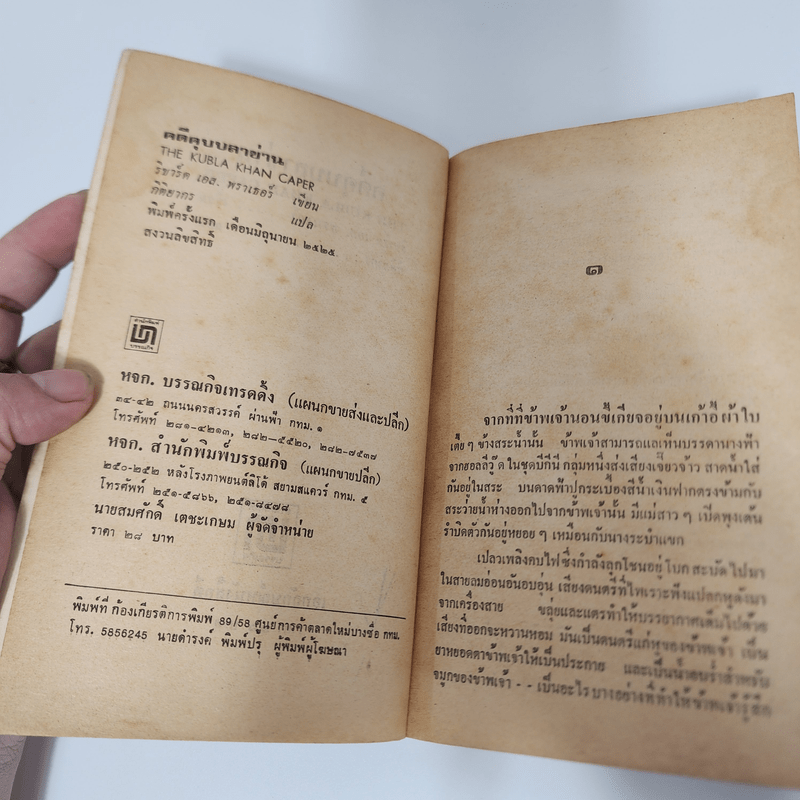 คดีคุบบลาข่าน
THE KUBLA KHAN CAPER
ริชาร์ด เอส. พราเธอร์ เขียน
กิติยากร แปล
พิมพ์ครั้งแรก เดือนมิถุนายน ๒๕๒๕
สงวนลิขสิทธิ์
สำนักพิมพ์
บรรณกิจ
หจก. บรรณกิจเทรดดิ้ง (แผนกขายส่งและปลีก)
๓๔-๔๒ ถนนนครสวรรค์ ผ่านฟ้า กทม. ๑
โทรศัพท์ ๒๘๑-๔๒๑๓, ๒๘๒-๕๕๒๐, ๒๘๒-๗๕๓๗
หจก. สำนักพิมพ์บรรณกิจ (แผนกขายปลีก)
๒๕๐-๒๕๒ หลังโรงภาพยนต์ลิโด้ สยามสแควร์ กทม. ๕
โทรศัพท์ ๒๕๑-๕๘๖๖, ๒๕๑-๘๔๗๘
นายสมศักดิ์ เตชะเกษม ผู้จัดจำหน่าย
ราคา ๒๘ บาท
พิมพ์ที่ ก้องเกียรติการพิมพ์ 89/58 ศูนย์การค้าตลาดใหม่บางซื่อ กทม.
โทร. 5856245 นายดำรงค์ พิมพ์ปรุ ผู้พิมพ์ผู้โฆษณา
๑
จากที่ที่ข้าพเจ้านอนซี้เกียจอยู่บนเก้าอี้ผ้าใบ
เตี้ย ๆ ข้างสระน้ำนั้น ข้าพเจ้าสามารถแลเห็นบรรดานางฟ้า
จากฮอลลีวู๊ด ในชุดบิกีนี่ กลุ่มหนึ่งส่งเสียงเจี๊ยวจ๊าว สาดน้ำใส่
กันอยู่ในสระ บนดาดฟ้าปูกระเบื้องสีน้ำเงินฟากตรงข้ามกับ
สระว่ายน้ำห่างออกไปจากข้าพเจ้านั้น มีแม่สาว ๆ เปิดพุงเต้น
รำบิดตัวกันอยู่หยอย ๆ เหมือนกับนางระบำแขก
เปลวเพลิงคบไฟ ซึ่งกำลังลุกโชนอยู่ โบก สะบัด ไปมา
ในสายลมอ่อนอันอบอุ่น เสียงดนตรีที่ไพเราะพึงแปลกหูดังมา
จากเครื่องสาย ขลุ่ยและแตรทำให้บรรยากาศเต็มไปด้วย
เสียงที่ออกจะหวานหอม มันเป็นดนตรีแก่หูของข้าพเจ้า เป็น
ยาหยอดตาข้าพเจ้าให้เป็นประกาย และเป็นน้ำอบร่ำสำหรับ
จมูกของข้าพเจ้า - - เป็นอะไรบางอย่างที่ทำให้ข้าพเจ้ารู้สึก